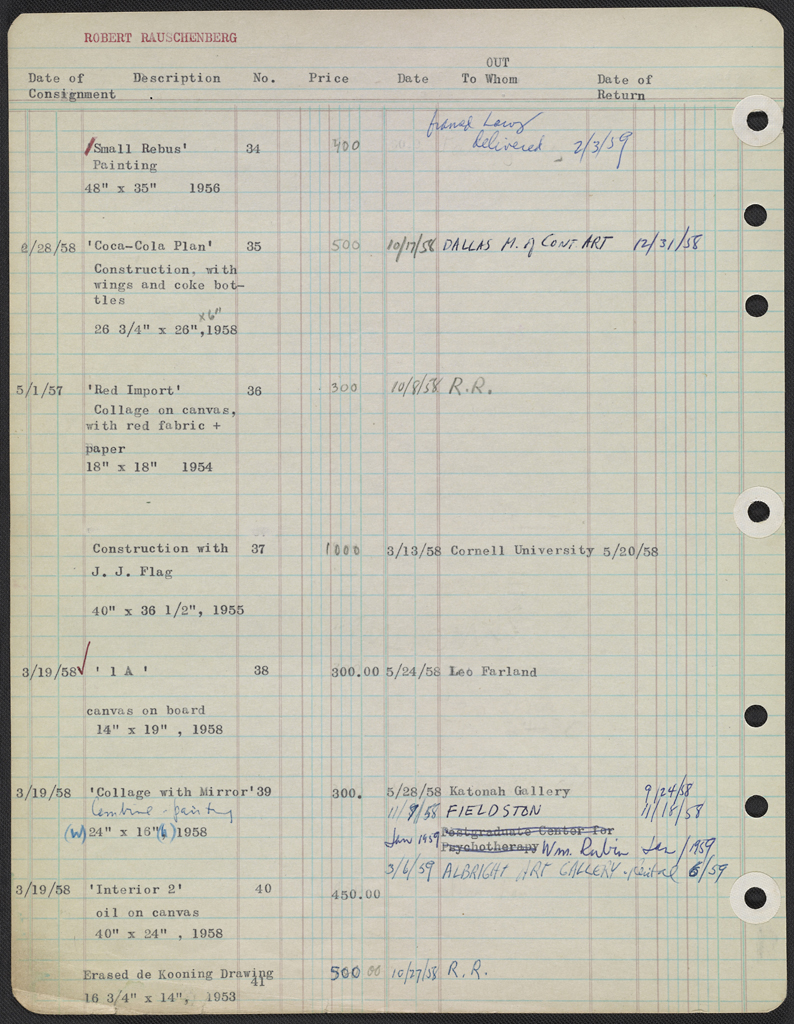 ROBERT RAUSCHENBERG
OUT
Date of Description No. Price Date To Whom Date of
Consignment Return
'Small Rebus' 34 400
delivered 2/3/59
Painting
48" x 35" 1956
2/28/58 'Coca-Cola Plan' 35 500 10/17/58 DALLAS M. of CONT ART 12/31/58
Construction, with
wings and coke bot-
tles
x6"
26 3/4" x 26",1958
5/1/57 'Red Import' 36 300 10/8/58 R.R.
Collage on canvas,
with red fabric +
paper
18" x 18" 1954
Construction with 37 1000 3/13/58 Cornell University 5/20/58
J. J. Flag
40" x 36 1/2", 1955
3/19/58 ' 1 A ' 38 300.00 5/24/58 Leo Farland
canvas on board
14" x 19" , 1958
3/19/58 'Collage with Mirror' 39 300. 5/28/58 Katonah Gallery 9/24/58
Combine - painting 11/9/58 FIELDSTON 11/18/58
(W) 24" x 16" (h) 1958 Jan 1959 Postgraduate Center for
Psychotherapy Wm. Rubin Jan/1959
3/6/59 ALBRIGHT ART GALLERY - rental 6/59
3/19/58 'Interior 2' 40 450.00
oil on canvas
40" x 24" , 1958
Erased de Kooning Drawing 41 500 00 10/27/58 R.R.
16 3/4" x 14", 1953